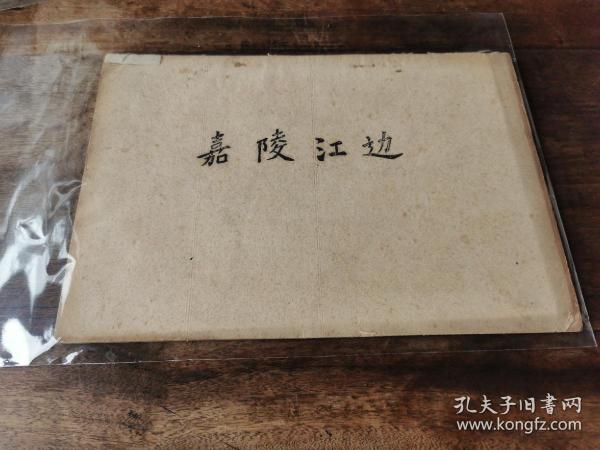 嘉陵江边
孔夫子旧書网
www.kongfz.com